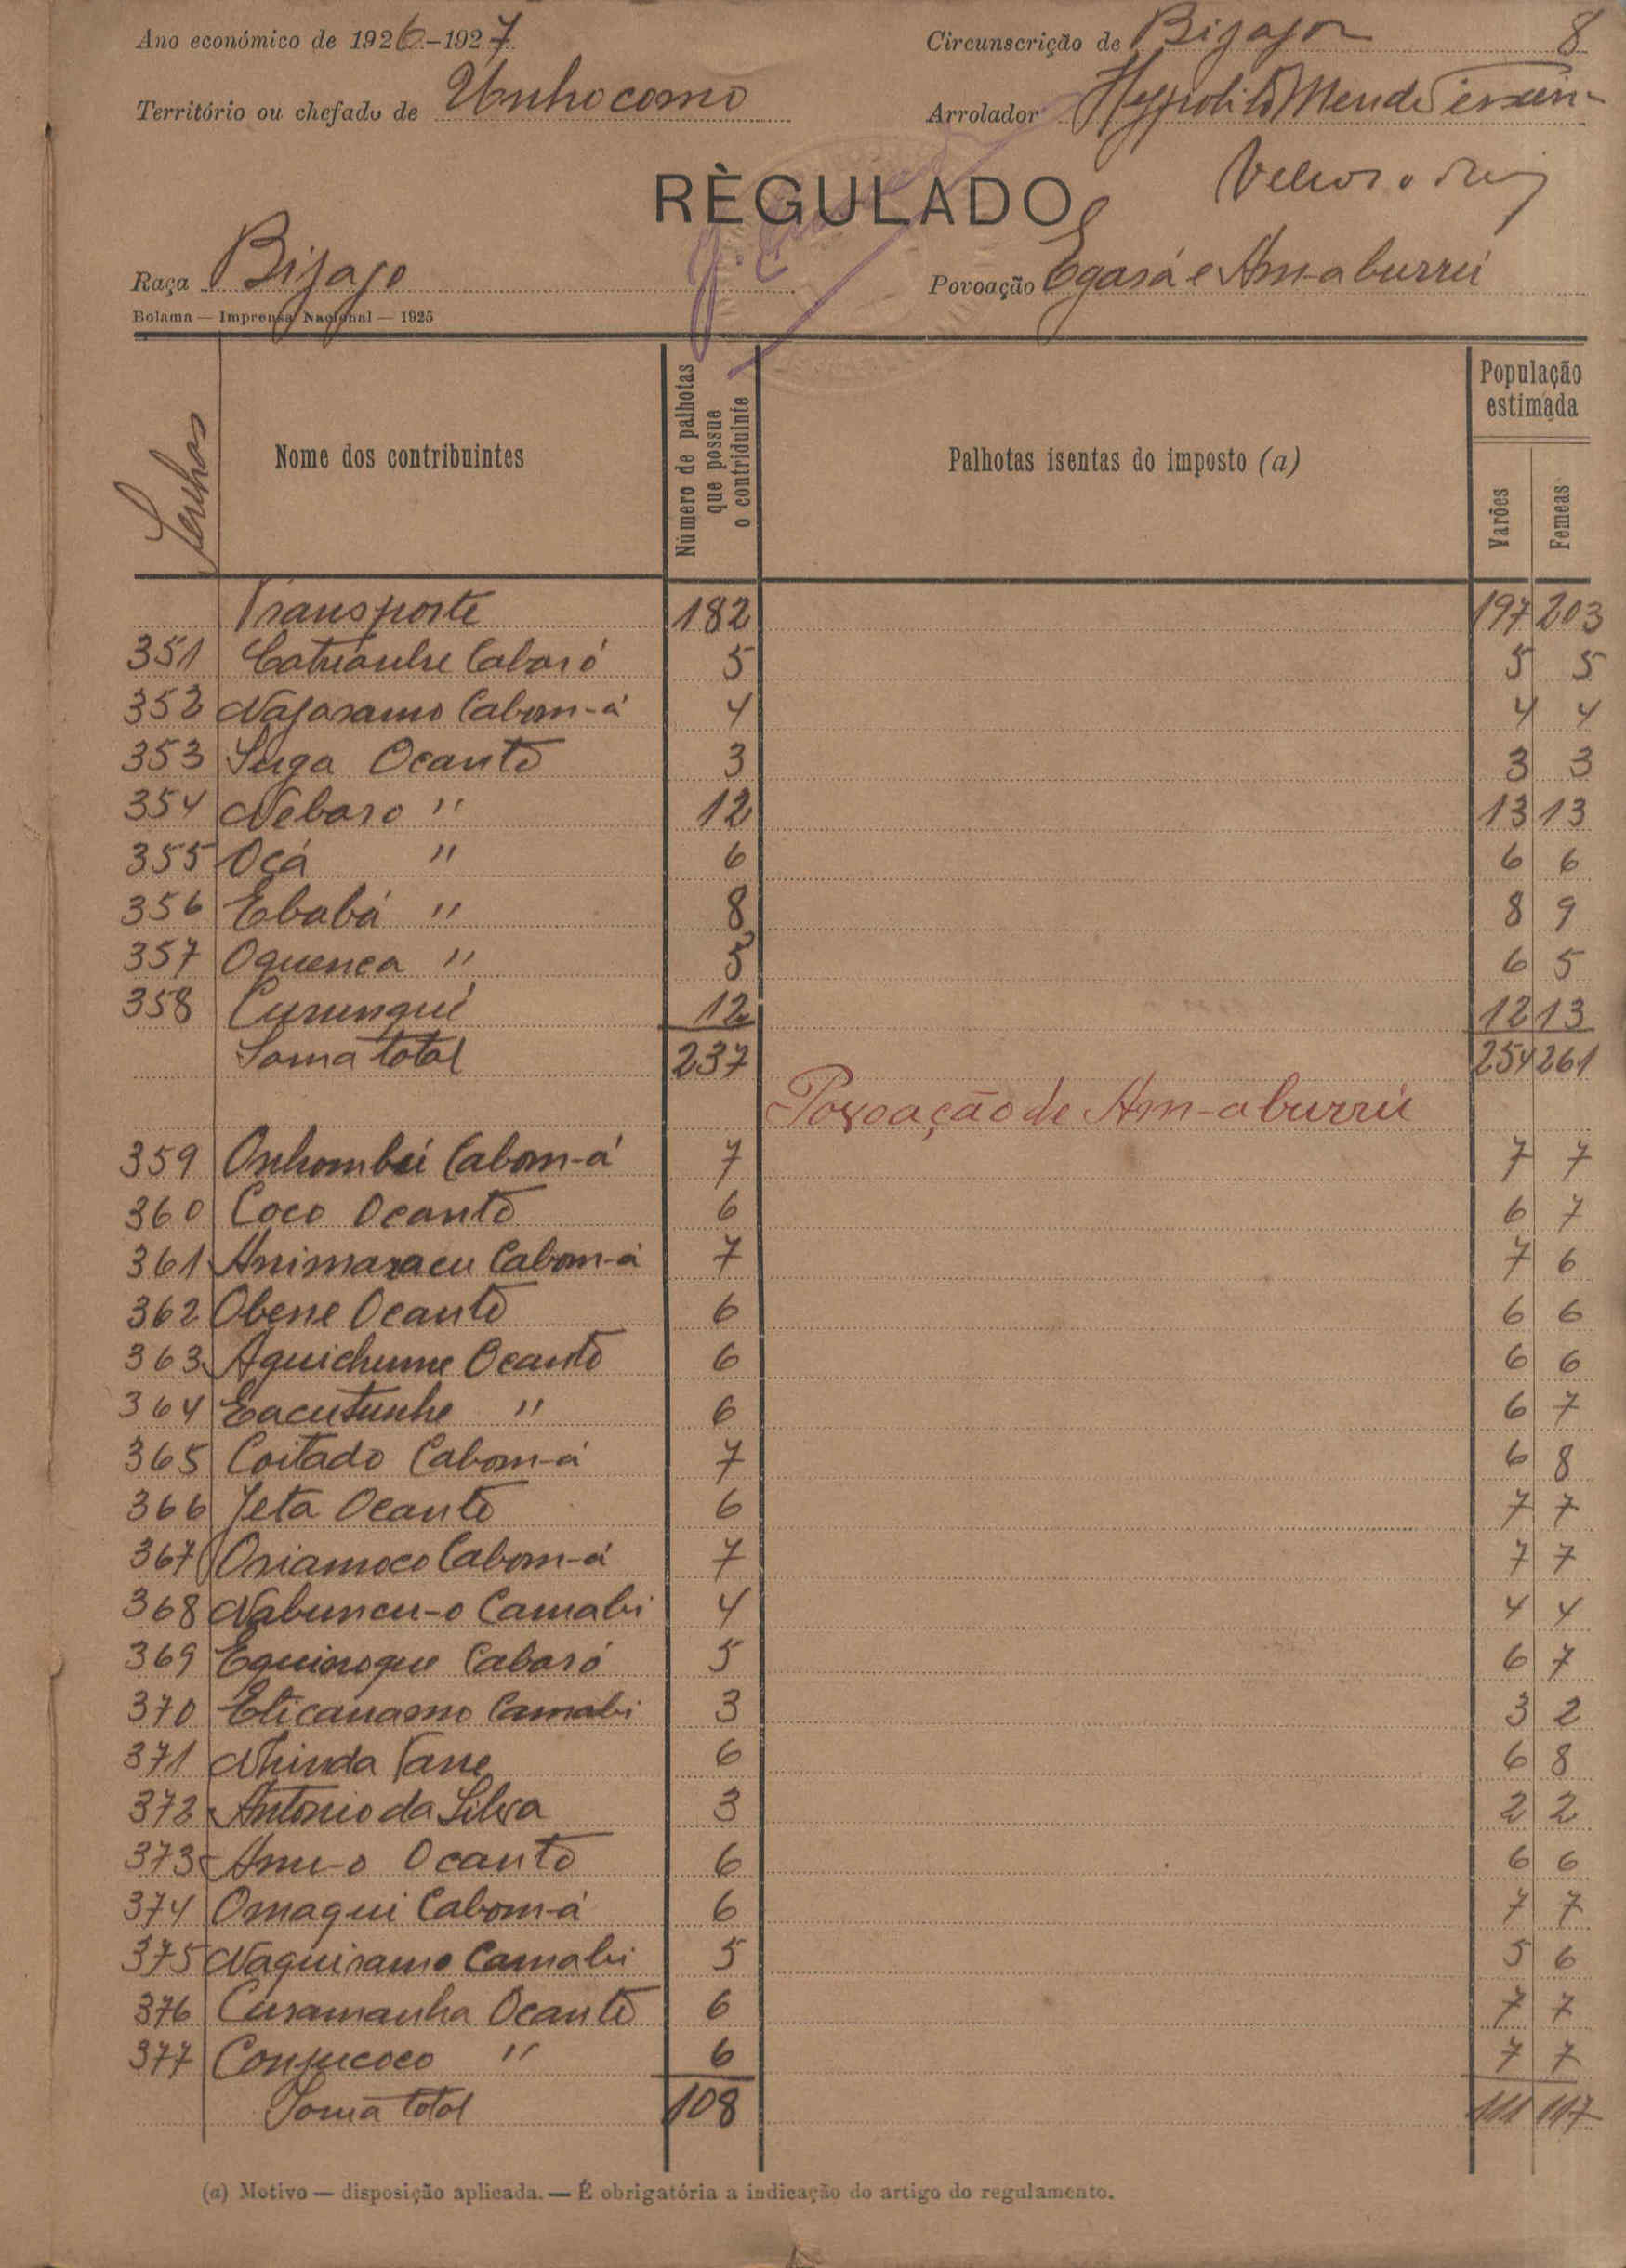 Ano económico de 1926-1927
Circunscrição de Bijagoz 8
Território ou chefado de Unhocomo
Arrolador Hyppolito Mendes
RÈGULADO
Raça Bijago
Povoação Egasá e Am-aburrú
Bolama — Imprensa Nacional — 1925
Senhas
Nome dos contribuintes
Número de palhotas que possue o contriduinte
Palhotas isentas do imposto (a)
População estimada
Varões
Femeas
Transporte 182 197 203
351 Cabaró 5 5 5
352 Najasamo Cabom-á 4 4 4
353 Suga Ocantò 3 3 3
354 Nebaro " 12 13 13
355 Oçá " 6 6 6
356 Ebabá " 8 8 9
357 Oquenca " 5 6 5
358 Curunqui 12 12 13
Soma total 237 254 261
Povoação de Am-aburrú
359 Onhombéi Cabom-á 7 7 7
360 Coco Ocantò 6 6 7
361 Animaracu Cabom-á 7 7 6
362 Obene Ocantò 6 6 6
363 Aquichume Ocantò 6 6 6
364 Eacutunhe " 6 6 7
365 Coitado Cabom-á 7 6 8
366 Jeta Ocantò 6 7 7
367 Oniamoco Cabom-á 7 7 7
368 Nabuncu-o Camabi 4 4 4
369 Equinoque Cabaró 5 6 7
370 Eticanamo Camabi 3 3 2
371 Nhinda Vane 6 6 8
372 Antonio da Silva 3 2 2
373 Anu-o Ocantò 6 6 6
374 Omaqui Cabom-á 6 7 7
375 Naquiramo Camabi 5 5 6
376 Curamanha Ocantò 6 7 7
377 Conjucoco " 6 7 7
Soma total 108 111 117
(a) Motivo — disposição aplicada. — É obrigatória a indicação do artigo do regulamento.